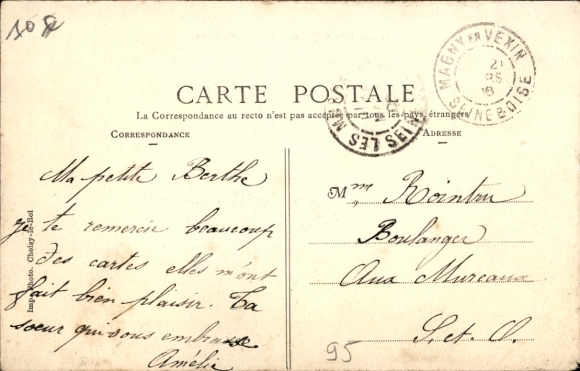 10 f
MAGNY EN VEXIN
21
SEINE & OISE
CARTE POSTALE
La Correspondance au recto n'est pas acceptée par tous les pays étrangers
CORRESPONDANCE
ADRESSE
Ma petite Berthe
je te remercie beaucoup
des cartes elles m'ont
fait bien plaisir. Ta
soeur qui vous embrasse
Amélie
Mme Rointru
Boulanger
Aux Mureaux
S. et O.
95
Imp. Photo. Choisy-le-Roi